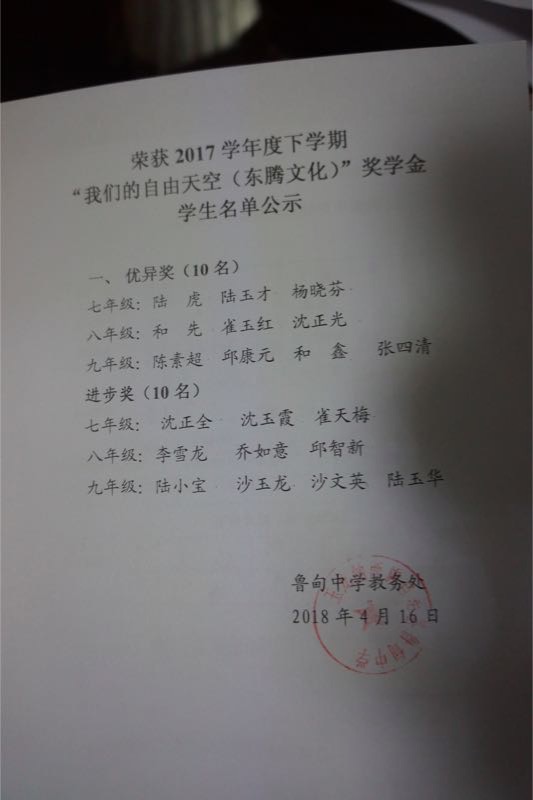 荣获 2017 学年度下学期
“我们的自由天空（东腾文化）”奖学金
学生名单公示
一、优异奖（10 名）
七年级：陆 虎 陆玉才 杨晓芬
八年级：和 先 崔玉红 沈正光
九年级：陈素超 邱康元 和 鑫 张四清
进步奖（10 名）
七年级：沈正全 沈玉霞 崔天梅
八年级：李雪龙 乔如意 邱智新
九年级：陆小宝 沙玉龙 沙文英 陆玉华
鲁甸中学教务处
2018 年 4 月 16 日